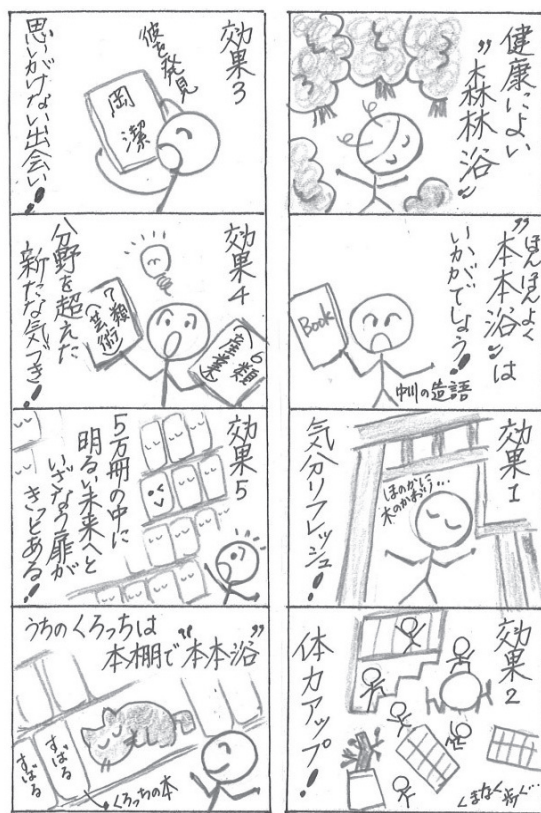 健康によい
"森林浴"
ほんほんよく
"本本浴"は
いかがでしょう!
Book
中川の造語
効果1
ほのかに
木のかおり…
気分リフレッシュ!
効果2
体力アップ!
くまなく歩く…
効果3
彼を発見
岡潔
思いがけない出会い!
効果4
6類
(産業)
7類
(芸術)
分野を超えた
新たな気づき!
効果5
5万冊の中に
明るい未来へと
いざなう扉が
きっとある!
うちのくろっちは
本棚で"本本浴"
すばる
すばる
くろっちの本